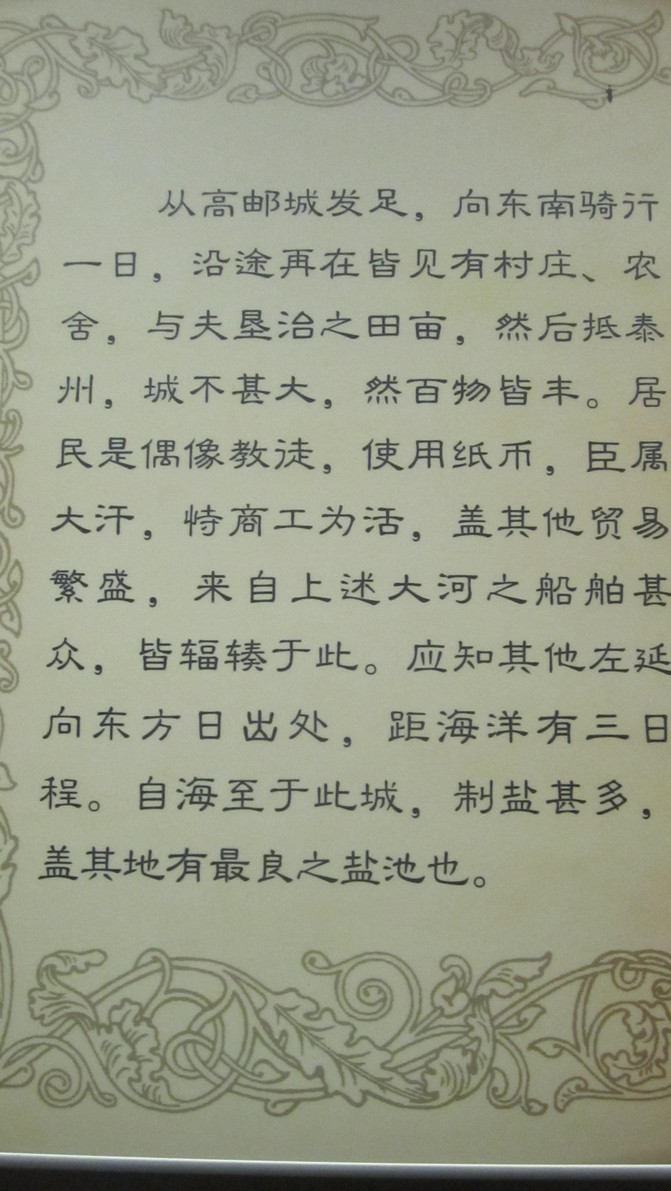 从高邮城发足，向东南骑行
一日，沿途再在皆见有村庄、农
舍，与夫垦治之田亩，然后抵泰
州，城不甚大，然百物皆丰。居
民是偶像教徒，使用纸币，臣属
大汗，恃商工为活，盖其他贸易
繁盛，来自上述大河之船舶甚
众，皆辐辏于此。应知其他左延
向东方日出处，距海洋有三日
程。自海至于此城，制盐甚多，
盖其地有最良之盐池也。